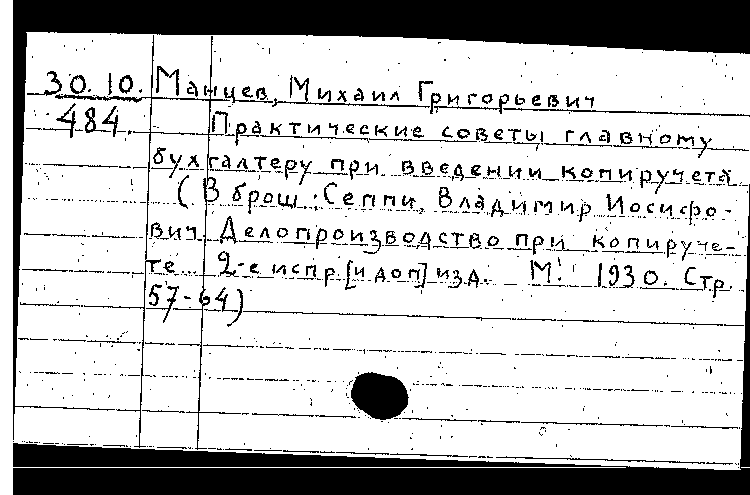 30.10. Манцев, Михаил Григорьевич
484. Практические советы главному
бухгалтеру при введении копиручета
(В брош.: Сеппи, Владимир Иосифо-
вич. Делопроизводство при копируче-
те. 2-е испр. [и доп] изд. М. 1930. Стр.
57-64)